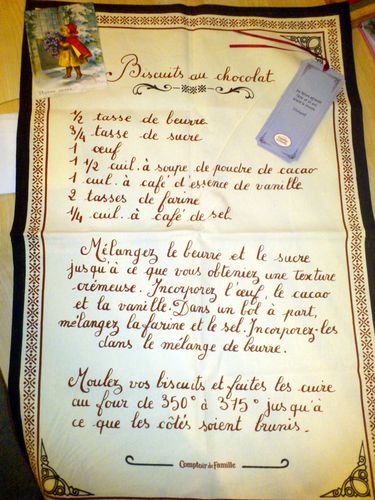 Biscuits au chocolat
½ tasse de beurre
¾ tasse de sucre
1 œuf
1 ½ cuil. à soupe de poudre de cacao
1 cuil. à café d'essence de vanille
2 tasses de farine
¼ cuil. à café de sel
Mélangez le beurre et le sucre
jusqu'à ce que vous obteniez une texture
crémeuse. Incorporez l'œuf, le cacao
et la vanille. Dans un bol à part,
mélangez la farine et le sel. Incorporez-les
dans le mélange de beurre.
Moulez vos biscuits et faites les cuire
au four de 350° à 375° jusqu'à
ce que les côtés soient brunis.
Comptoir de Famille